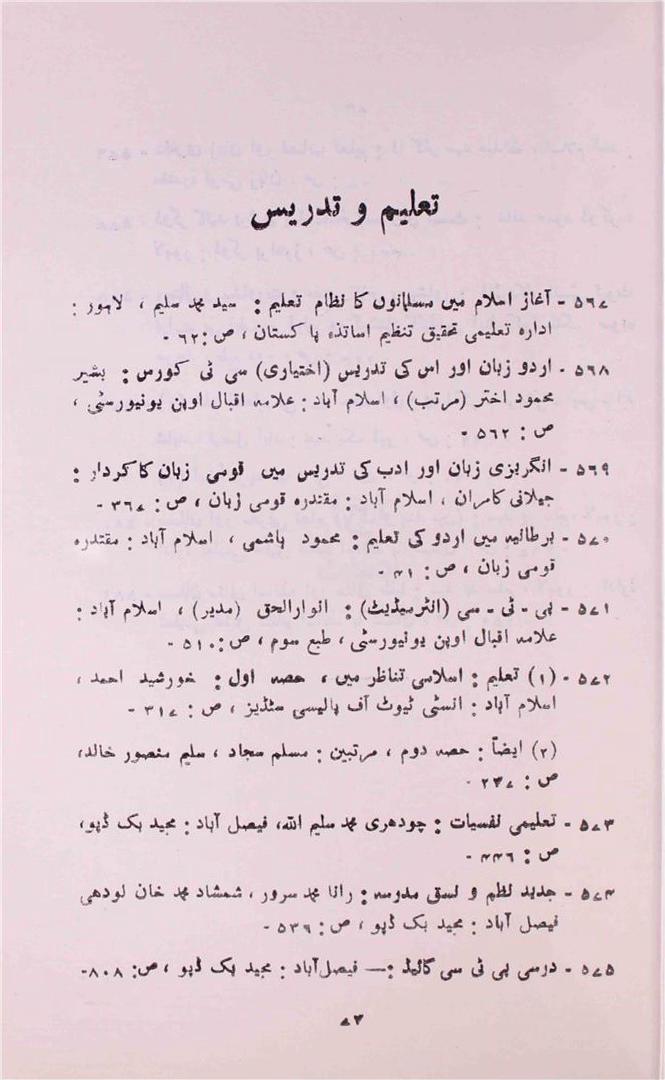 تعلیم و تدریس
۵۶۷ - آغاز اسلام میں مسلمانوں کا نظام تعلیم : سید محمد سلیم ، لاہور :
ادارہ تعلیمی تحقیق تنظیم اساتذہ پاکستان ، ص : ۶۲ -
۵۶۸ - اردو زبان اور اس کی تدریس (اختیاری) سی ٹی کورس : بشیر
محمود اختر (مرتب) ، اسلام آباد : علامہ اقبال اوپن یونیورسٹی ،
ص : ۵۶۲ -
۵۶۹ - انگریزی زبان اور ادب کی تدریس میں قومی زبان کا کردار :
جیلانی کامران ، اسلام آباد : مقتدرہ قومی زبان ، ص : ۳۶۷ -
۵۷۰ - برطانیہ میں اردو کی تعلیم : محمود ہاشمی ، اسلام آباد : مقتدرہ
قومی زبان ، ص : ۴۱ -
۵۷۱ - پی - ٹی - سی (انٹرمیڈیٹ) : انوارالحق (مدیر) ، اسلام آباد :
علامہ اقبال اوپن یونیورسٹی ، طبع سوم ، ص : ۵۱۰ -
۵۷۲ - (۱) تعلیم : اسلامی تناظر میں ، حصہ اول : خورشید احمد ،
اسلام آباد : انسٹی ٹیوٹ آف پالیسی سٹڈیز ، ص : ۳۱۷ -
(۲) ایضاً : حصہ دوم ، مرتبین : مسلم سجاد ، سلیم منصور خالد،
ص : ۲۴۷ -
۵۷۳ - تعلیمی نفسیات : چودھری محمد سلیم اللہ، فیصل آباد : مجید بک ڈپو،
ص : ۴۴۶ -
۵۷۴ - جدید نظم و نسق مدرسہ : رانا محمد سرور ، شمشاد محمد خان لودھی
فیصل آباد : مجید بک ڈپو ، ص : ۵۳۶ -
۵۷۵ - درسی پی ٹی سی گائیڈ : — فیصل آباد : مجید بک ڈپو ، ص: ۸۰۸-
۷۳